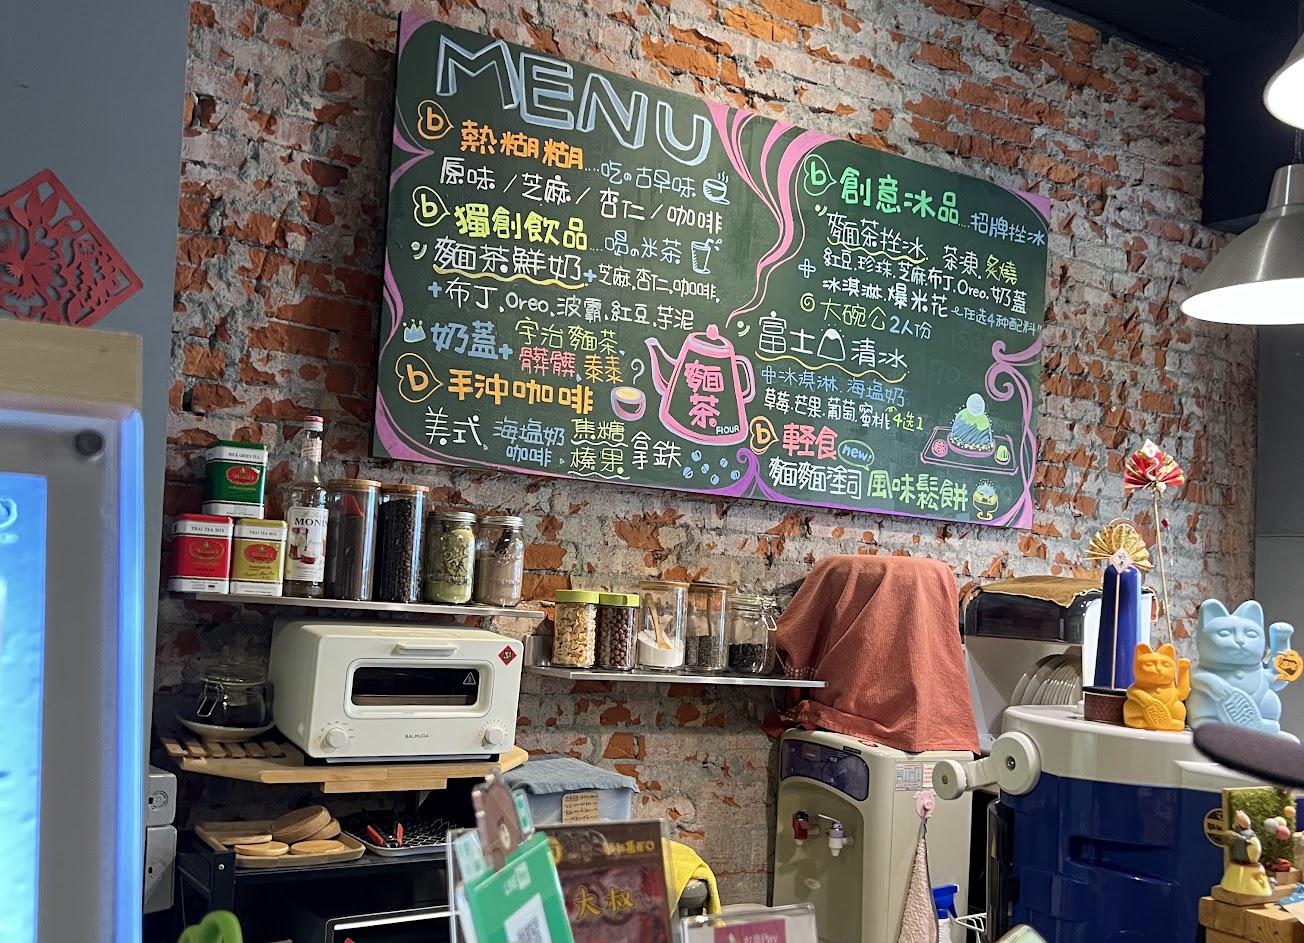 MENU
b 熱糊糊....吃の古早味
原味/芝麻/杏仁/咖啡
b 獨創飲品....喝の米茶
麵茶鮮奶+芝麻.杏仁.咖啡.
+布丁.Oreo.波霸.紅豆.芋泥
奶蓋+宇治麵茶.
髒髒.泰泰?
b 手沖咖啡
美式.海塩奶咖啡.焦糖榛果拿鉄
麵茶
FlOUR
b 創意冰品....招牌挫冰
麵茶挫冰 茶凍.炙燒
紅豆.珍珠.芝麻.布丁.Oreo.奶蓋
+冰淇淋.爆米花~任选4种配料!!
大碗公2人份
富士山清冰
+冰淇淋.海塩奶
草莓.芒果.葡萄.蜜桃 4选1
b 輕食 new!
麵麵塗司 風味鬆餅
THAI TEA MIX
THAI TEA MIX
MONIN
BALMUDA
大叔
Pay